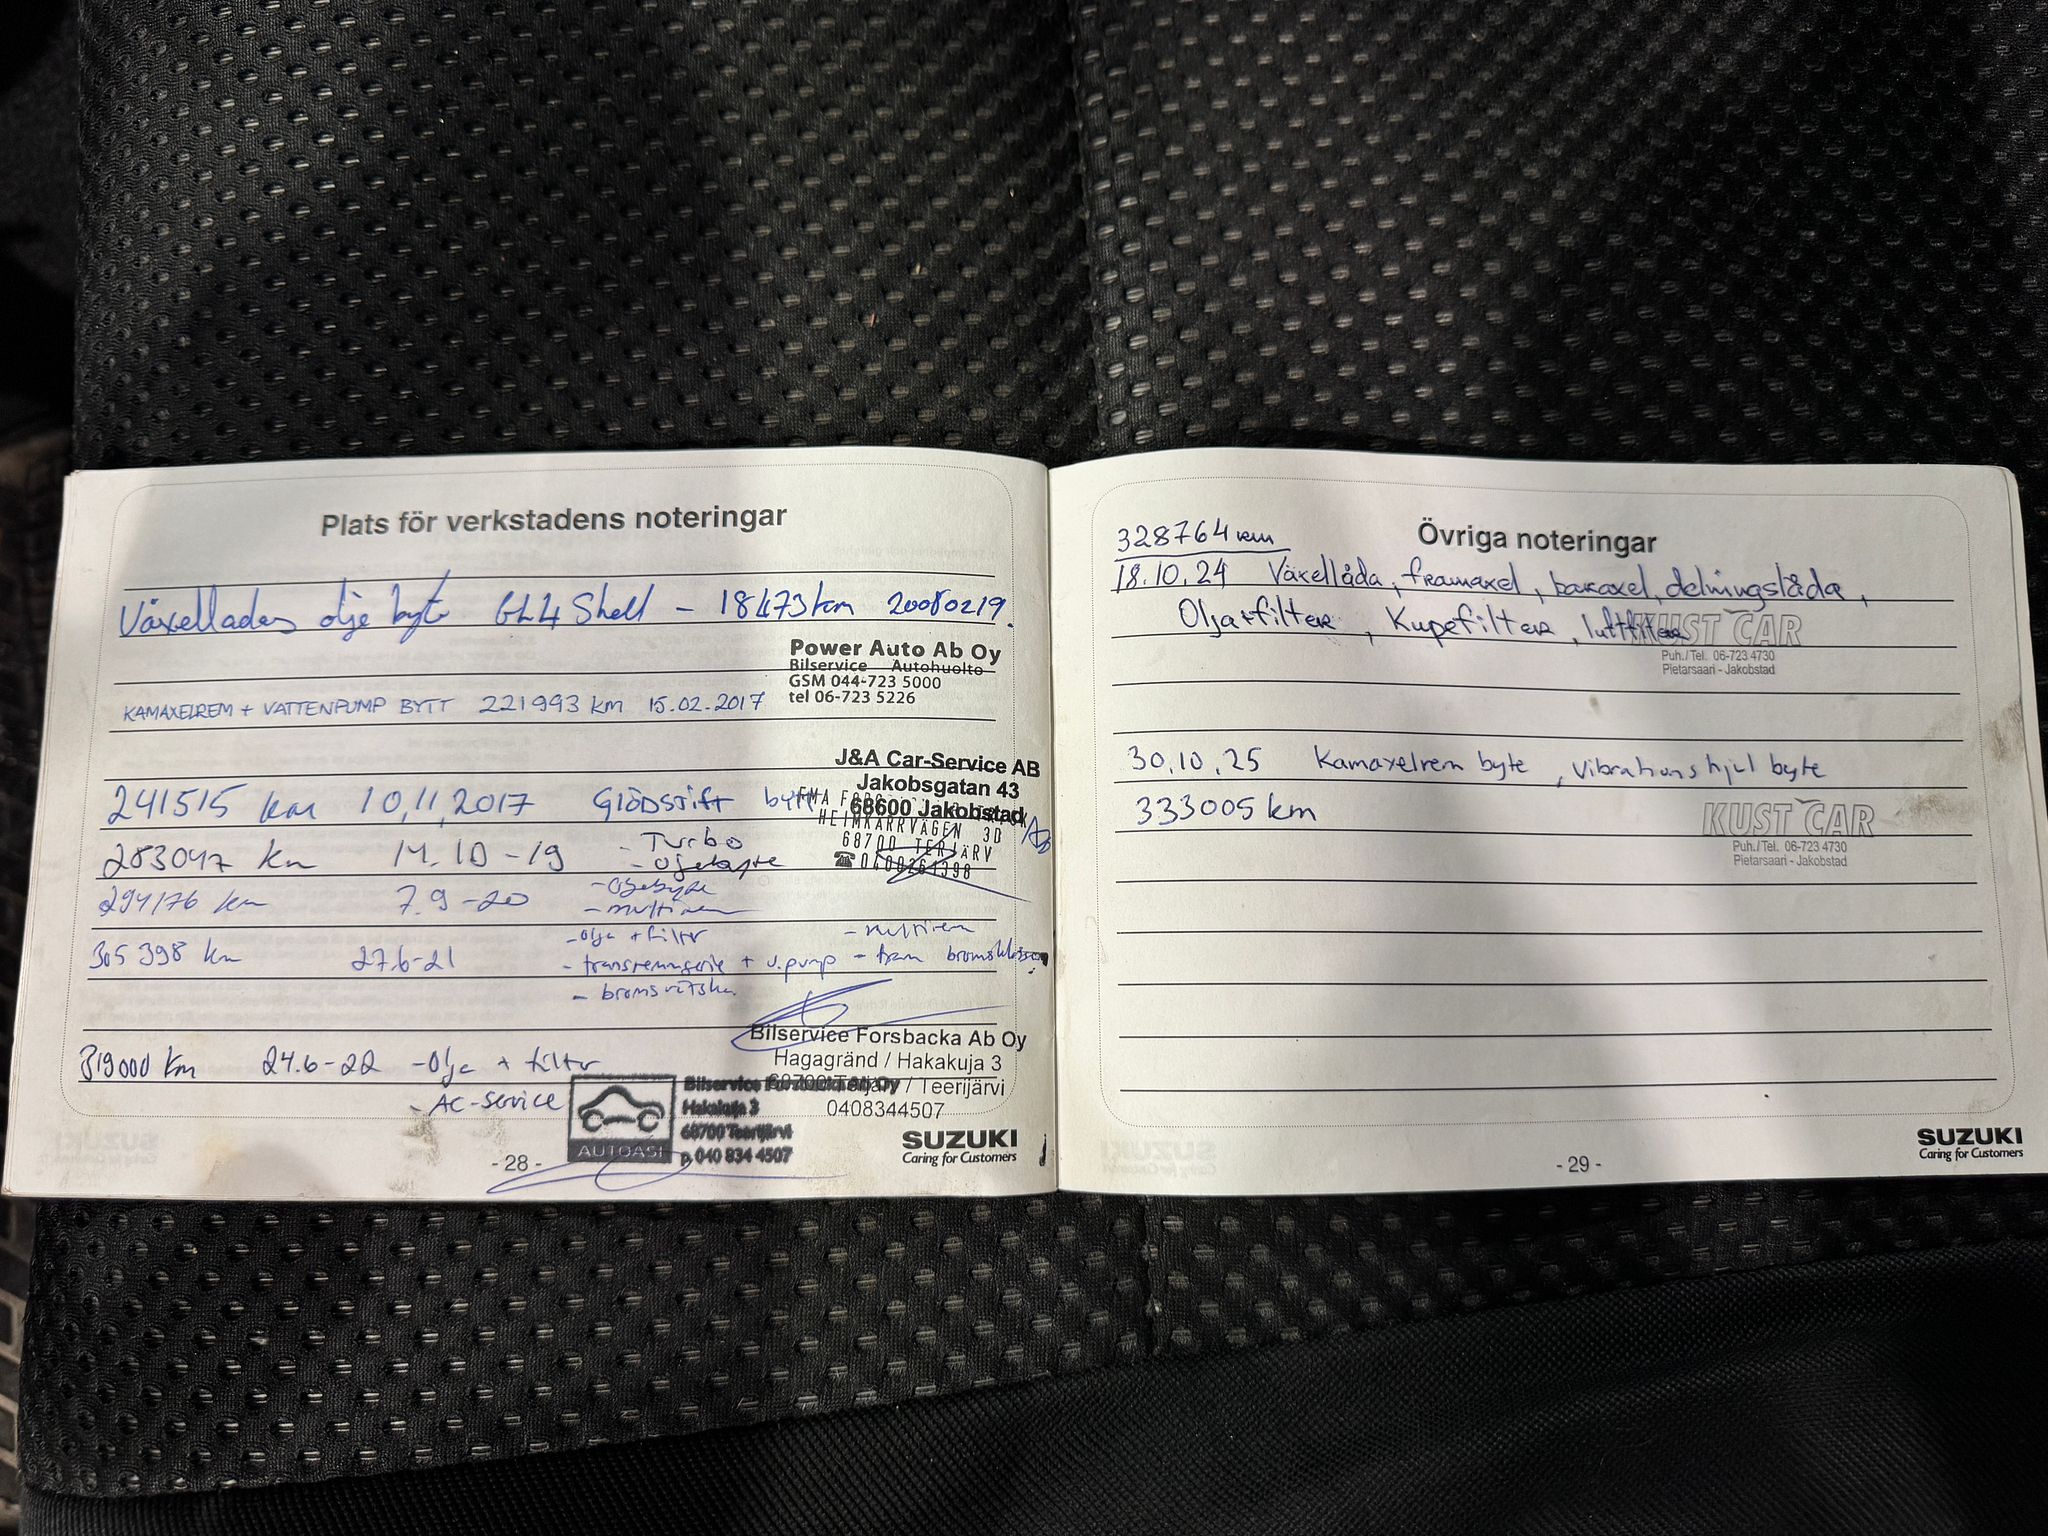 Plats för verkstadens noteringar
Växellådas olje byte GL4 Shell - 18473 km 20080219.
Power Auto Ab Oy
Bilservice Autohuolto
GSM 044-723 5000
tel 06-723 5226
KAMAXELREM + VATTENPUMP BYTT 221993 km 15.02.2017
J&A Car-Service AB
Jakobsgatan 43
68600 Jakobstad
241515 km 10,11,2017 GLÖDSTIFT bytt
HEIMKÄRRVÄGEN 3D
68700 TERJÄRV
☎0400264398
283047 km 14.10-19 - Turbo
- oljebyte
294176 km 7.9-20 - oljebyte
- multirem
305 398 km 27.6-21 - olja + filter - multirem
- transremserie + v.pump - fram
- bromsvätska
Bilservice Forsbacka Ab Oy
Hagagränd / Hakakuja 3
68700 Terjärv / Teerijärvi
0408344507
319000 km 24.6-22 - Olja + filter
- AC-service
AUTOASI
Bilservice Forsbacka Ab Oy
Hakakuja 3
68700 Teerijärvi
p. 040 834 4507
SUZUKI
Caring for Customers
- 28 -
Övriga noteringar
328764 km
18.10.24 Växellåda, framaxel, bakaxel, delningslåda,
Olja+filter, Kupefilter, luftfilter
KUST CAR
Puh./Tel. 06-723 4730
Pietarsaari - Jakobstad
30.10.25 Kamaxelrem byte, vibrationshjul byte
333005 km
KUST CAR
Puh./Tel. 06-723 4730
Pietarsaari - Jakobstad
SUZUKI
Caring for Customers
- 29 -